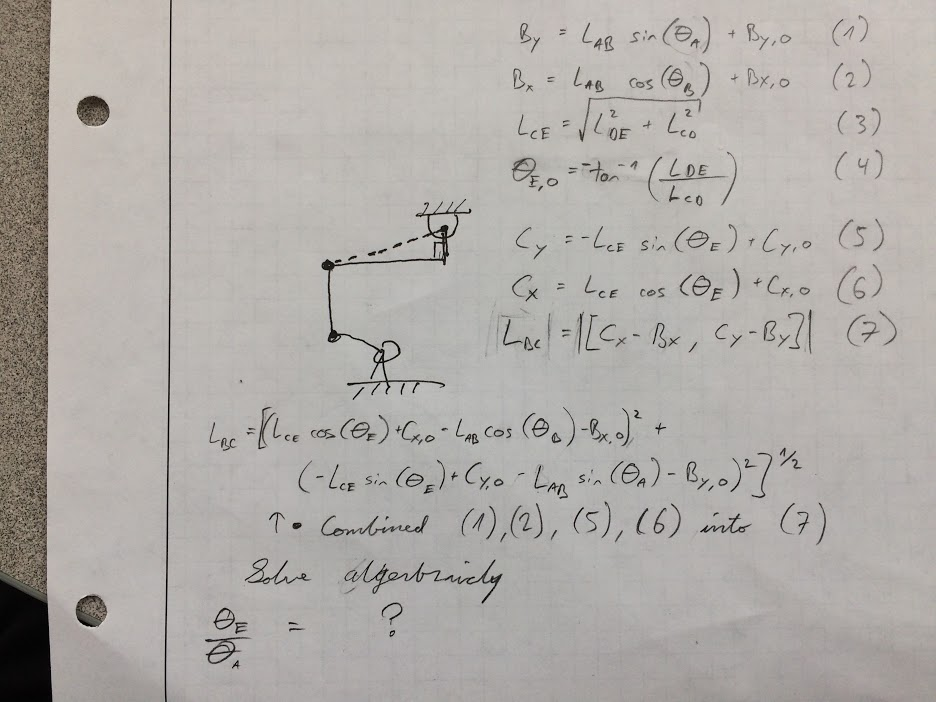 B_y = L_AB sin(θ_A) + B_y,0 (1)
B_x = L_AB cos(θ_B) + B_x,0 (2)
L_CE = √(L²_DE + L²_CD) (3)
θ_E,0 = -tan⁻¹(L_DE / L_CD) (4)
C_y = -L_CE sin(θ_E) + C_y,0 (5)
C_x = L_CE cos(θ_E) + C_x,0 (6)
|L_BC| = |[C_x - B_x, C_y - B_y]| (7)
L_BC = [(L_CE cos(θ_E) + C_x,0 - L_AB cos(θ_B) - B_x,0)² +
(-L_CE sin(θ_E) + C_y,0 - L_AB sin(θ_A) - B_y,0)²]^1/2
↑ • Combined (1), (2), (5), (6) into (7)
Solve algerbraicly
θ_E / θ_A = ?